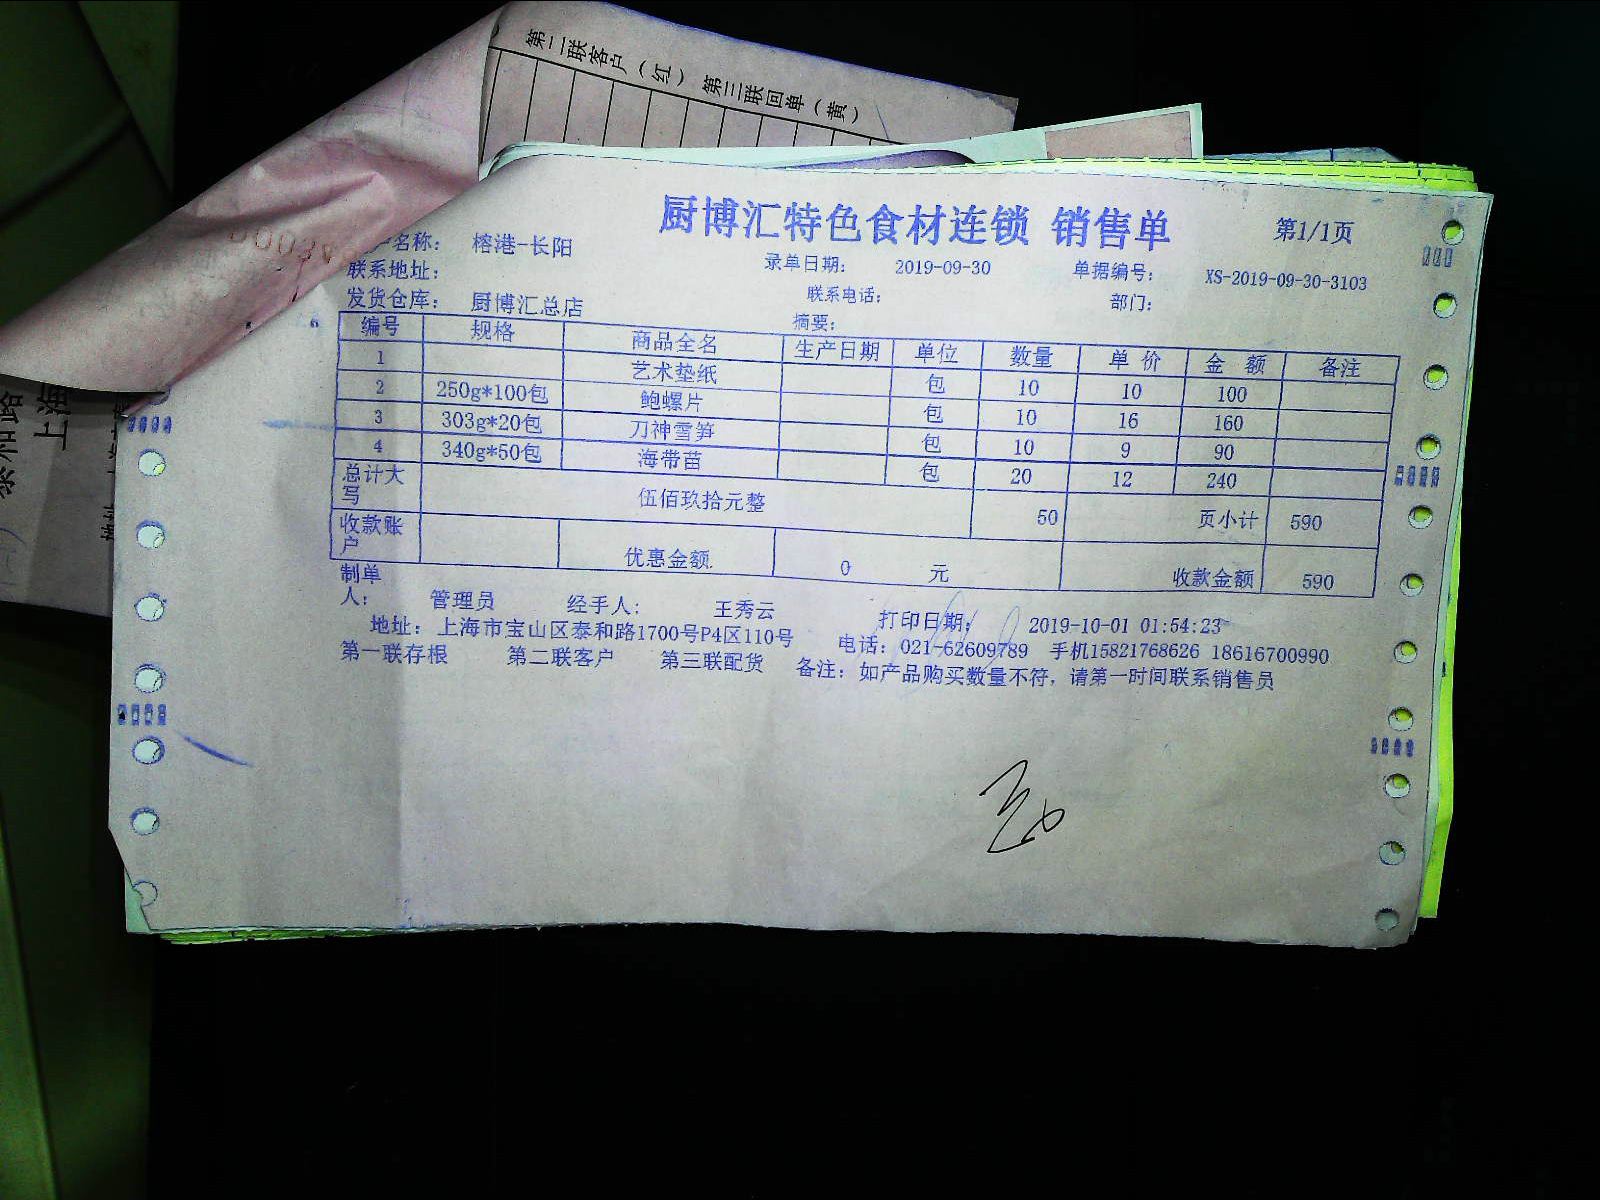 第二联客户（红） 第三联回单（黄）
厨博汇特色食材连锁 销售单 第1/1页
户名称： 榕港-长阳 录单日期： 2019-09-30 单据编号： XS-2019-09-30-3103
联系地址： 联系电话： 部门：
发货仓库： 厨博汇总店 摘要：
编号 规格 商品全名 生产日期 单位 数量 单 价 金 额 备注
1 艺术垫纸 包 10 10 100
2 250g*100包 鲍螺片 包 10 16 160
3 303g*20包 刀神雪笋 包 10 9 90
4 340g*50包 海带苗 包 20 12 240
总计大写 伍佰玖拾元整 50 页小计 590
收款账户 优惠金额. 0 元 收款金额 590
制单人： 管理员 经手人： 王秀云 打印日期： 2019-10-01 01:54:23
地址： 上海市宝山区泰和路1700号P4区110号 电话：021-62609789 手机15821768626 18616700990
第一联存根 第二联客户 第三联配货 备注：如产品购买数量不符，请第一时间联系销售员
泰和路
上海